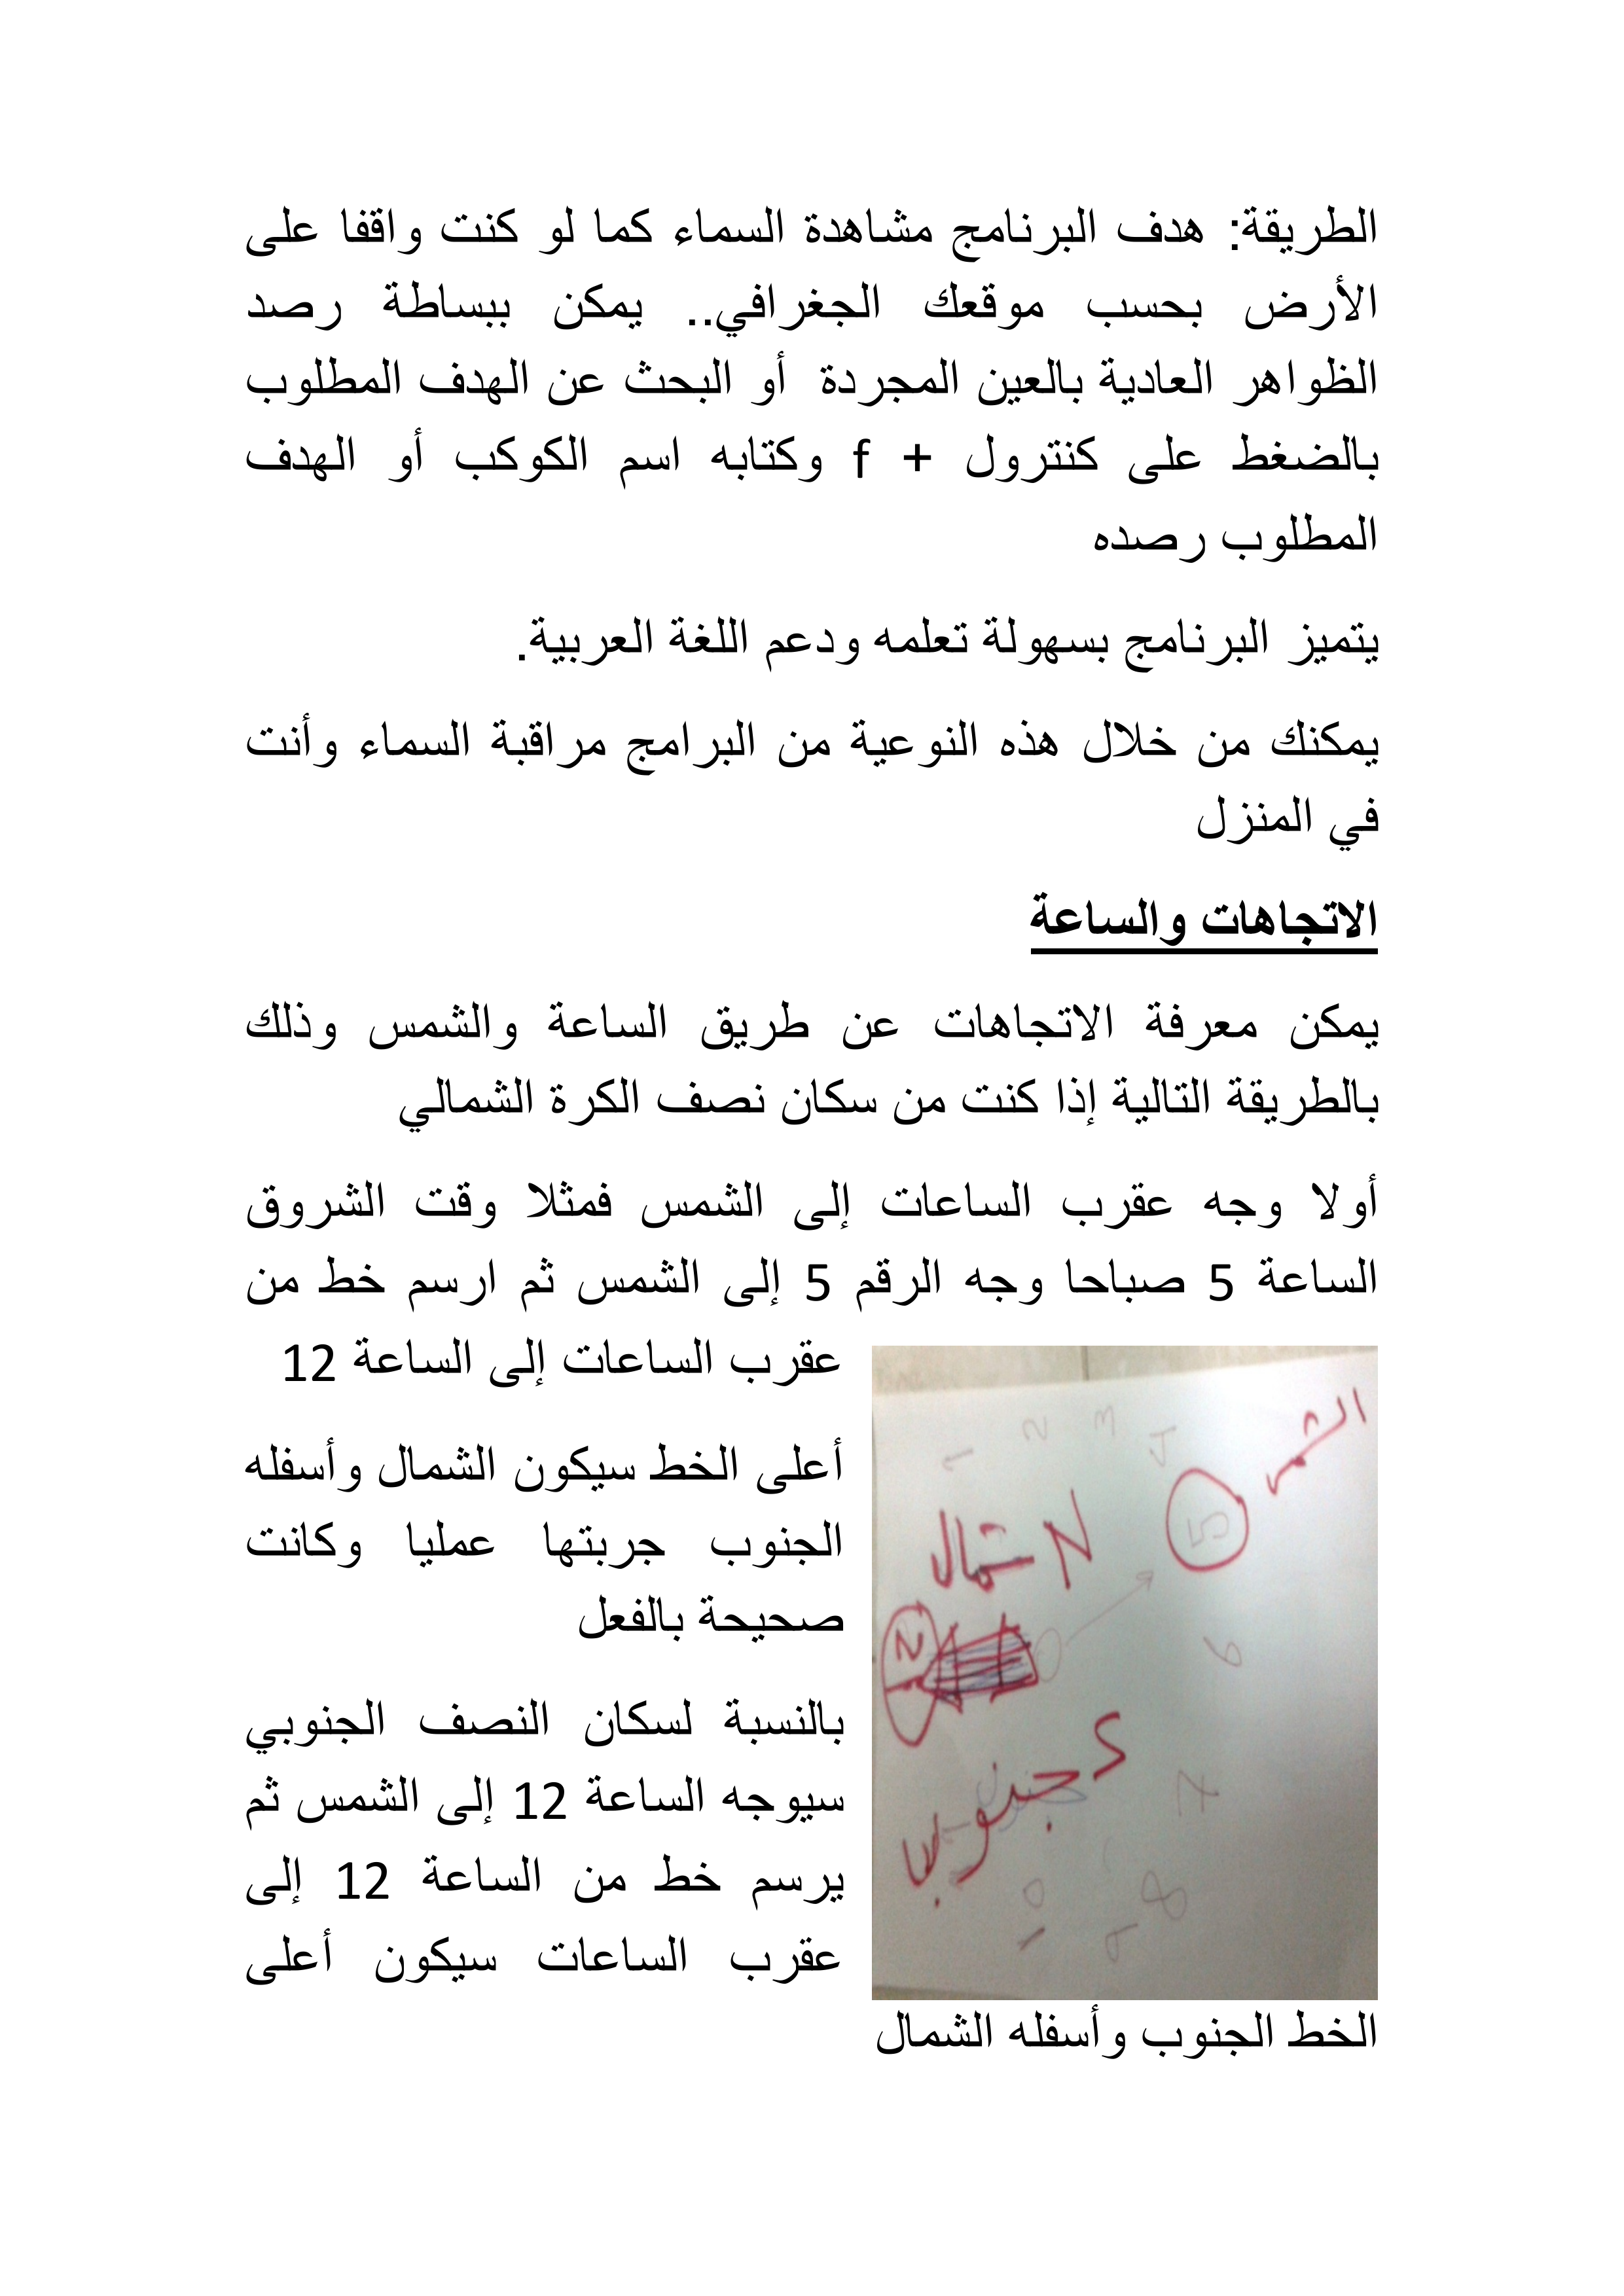 الطريقة: هدف البرنامج مشاهدة السماء كما لو كنت واقفا على
الأرض بحسب موقعك الجغرافي.. يمكن ببساطة رصد
الظواهر العادية بالعين المجردة أو البحث عن الهدف المطلوب
بالضغط على كنترول + f وكتابه اسم الكوكب أو الهدف
المطلوب رصده
يتميز البرنامج بسهولة تعلمه ودعم اللغة العربية.
يمكنك من خلال هذه النوعية من البرامج مراقبة السماء وأنت
في المنزل
الاتجاهات والساعة
يمكن معرفة الاتجاهات عن طريق الساعة والشمس وذلك
بالطريقة التالية إذا كنت من سكان نصف الكرة الشمالي
أولا وجه عقرب الساعات إلى الشمس فمثلا وقت الشروق
الساعة 5 صباحا وجه الرقم 5 إلى الشمس ثم ارسم خط من
عقرب الساعات إلى الساعة 12
أعلى الخط سيكون الشمال وأسفله
الجنوب جربتها عمليا وكانت
صحيحة بالفعل
بالنسبة لسكان النصف الجنوبي
سيوجه الساعة 12 إلى الشمس ثم
يرسم خط من الساعة 12 إلى
عقرب الساعات سيكون أعلى
الخط الجنوب وأسفله الشمال
الشمس
1 2 3 4
5
شمال N
6
جنوب
7
8
10